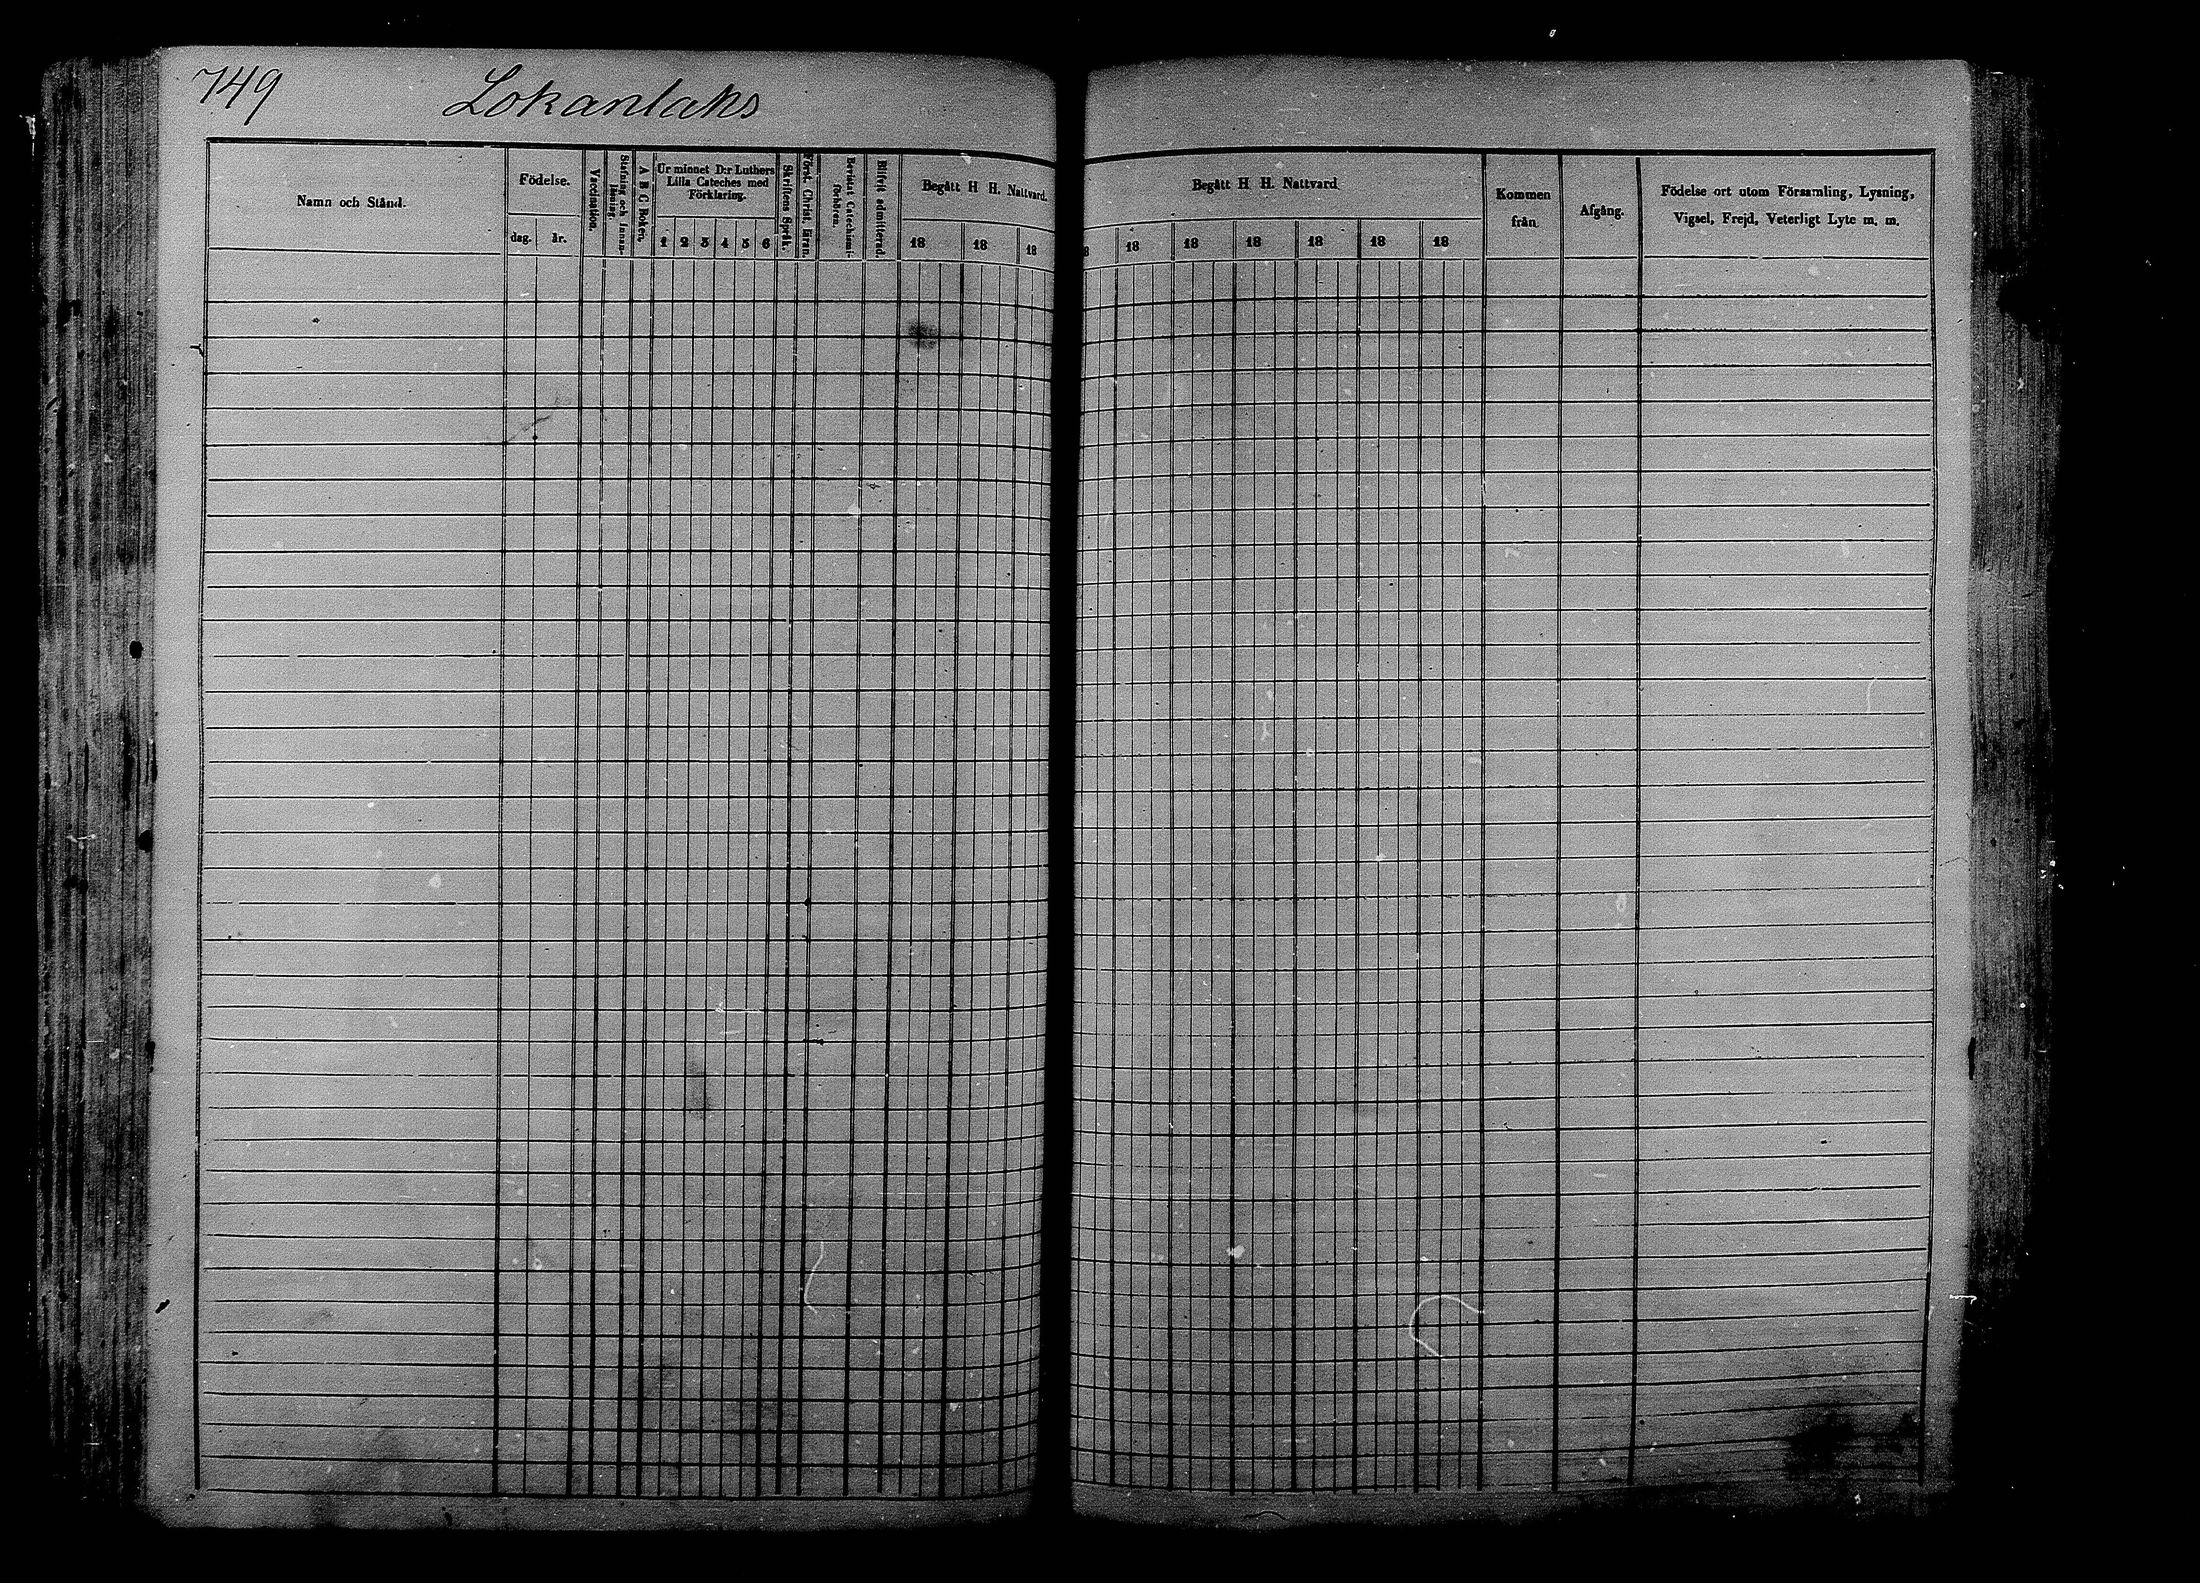 749 Lokanlaks
Namn och Stånd.
Födelse.
dag. år.
Vaccination.
Stafning och Innan-
läsning.
A B C Boken.
Ur minnet D:r Luthers
Lilla Cateches med
Förklaring.
1 2 3 4 5 6
Skriftens Språk.
Först. Christ. läran.
Bevistat Catechismi-
förhören.
Blifvit admitterad.
Begått H H. Nattvard.
18 18 18
Begått H H. Nattvard
8 18 18 18 18 18 18
Kommen
från.
Afgång.
Födelse ort utom Församling, Lysning,
Vigsel, Frejd, Veterligt Lyte m. m.